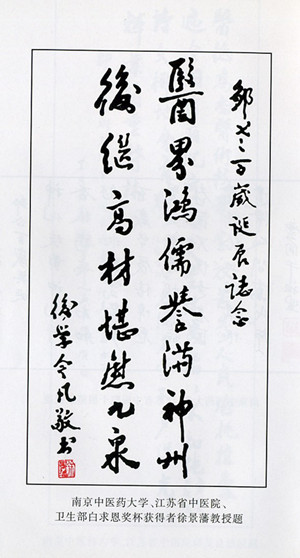 鄒老百歲誕辰誌念
醫界鴻儒譽滿神州
後继高材堪慰九泉
後学令凡敬书
南京中医药大学、江苏省中医院、
卫生部白求恩奖杯获得者徐景藩教授题